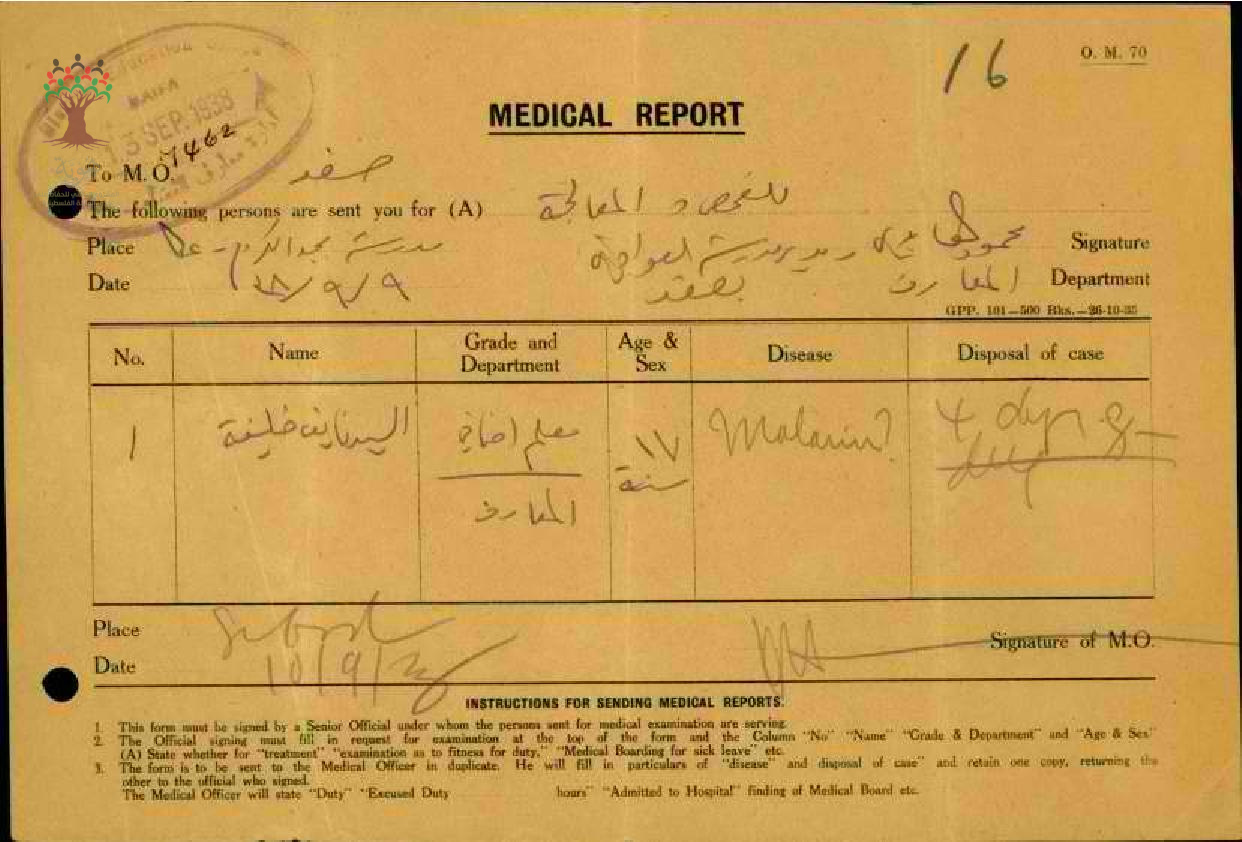 16
O. M. 70
HAIFA
13 SEP. 1938
7462
MEDICAL REPORT
To M. O. صفد
The following persons are sent you for (A) للفحص و المعالجة
Place مدرسة مجد الكروم - عكا
محمود
Signature
Date ٩/٩/٣٨
بصفد
المعارف Department
GPP. 101—500 Bks.—26-10-35
No. Name Grade and Department Age & Sex Disease Disposal of case
١ السيد نايف خليفة معلم اضافي ١٧ Malaria? 4 days
المعارف سنة
Place
Date 10/9/38
Signature of M.O.
INSTRUCTIONS FOR SENDING MEDICAL REPORTS.
1. This form must be signed by a Senior Official under whom the persons sent for medical examination are serving.
2. The Official signing must fill in request for examination at the top of the form and the Column "No" "Name" "Grade & Department" and "Age & Sex"
(A) State whether for "treatment" "examination as to fitness for duty," "Medical Boarding for sick leave" etc.
3. The form is to be sent to the Medical Officer in duplicate. He will fill in particulars of "disease" and disposal of case" and retain one copy, returning the
other to the official who signed.
The Medical Officer will state "Duty" "Excused Duty hours" "Admitted to Hospital" finding of Medical Board etc.